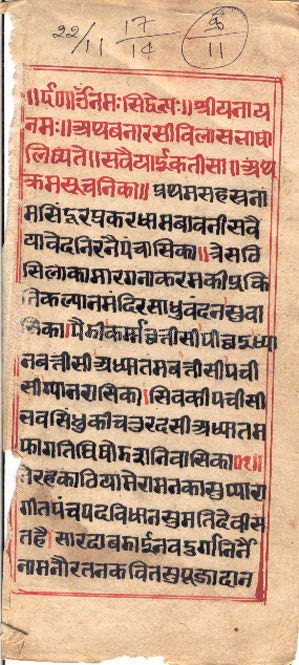 22/11 17/14 11
॥र्द॥ॐनमःसिद्धेभ्यः॥श्रीयनाय
नमः॥अथबनारसीविलासभाषा
लिष्यते॥सवैयाईकतीसा॥अथ
क्रमसूचनिका॥प्रथमसहस्रना
मसिंदूरप्रकरधामबावनीसवै
यावेदनिरनैपंचासिका॥त्रेसठि
सिलाकामारगनाकरमकीप्रकि
तिकल्यानमंदिरसाधुवंदनसुवा
सिका॥पैडीकर्मछत्तीसीपीछैध्या
नबत्तीसीअध्यातमबत्तीसीपची
सीग्यानरासिका॥सिवकीपचीसी
भवसिंधुकीचतुरदसीअध्यातम
फागतिथिषोडशनिवासिका॥१॥
तेरहकाठियामेरामनकासुप्यारा
गीतपंचपदविधानसुमतिदेवीस
तहै॥सारदाबधाईनवदुर्गानिर्नै
नामनौरतनकवितसुपूजादान